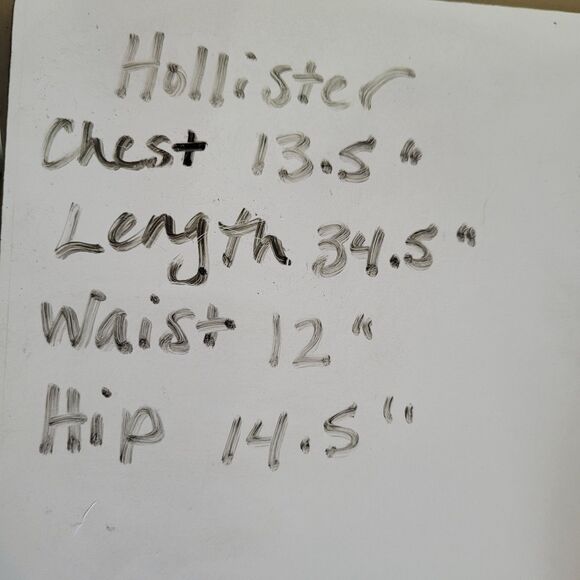 Hollister
Chest 13.5"
Length 34.5"
Waist 12"
Hip 14.5"